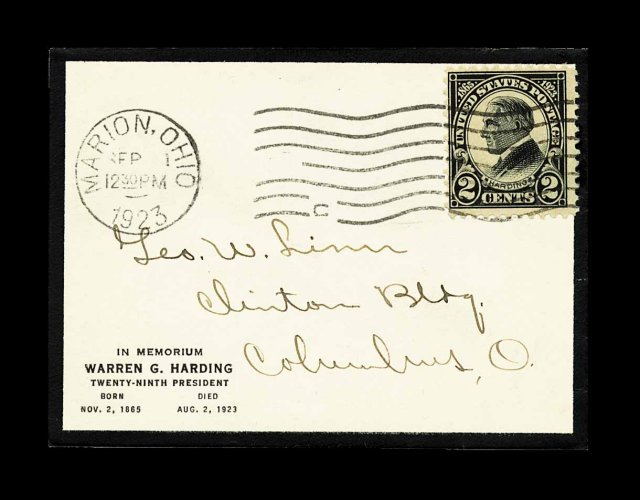 MARION, OHIO
SEP 1
12 30 PM
1923
C
1865 1923
UNITED STATES POSTAGE
HARDING
2 CENTS 2
Geo. W. Linn
Clinton Bldg.
Columbus, O.
IN MEMORIUM
WARREN G. HARDING
TWENTY-NINTH PRESIDENT
BORN DIED
NOV. 2, 1865 AUG. 2, 1923